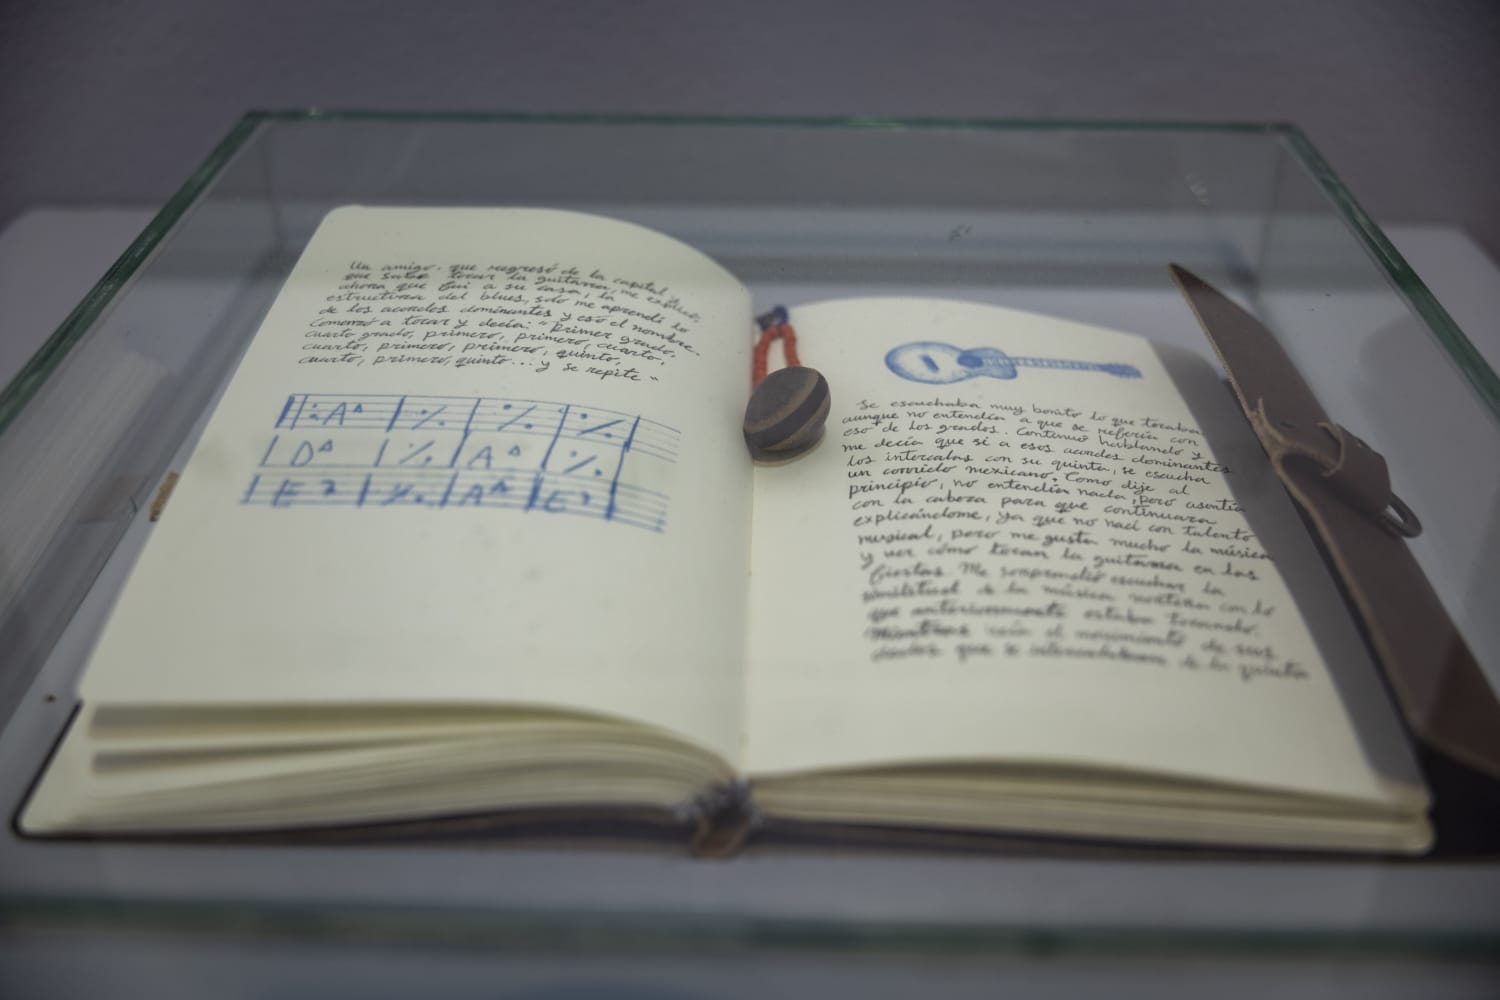 Un amigo, que regresó de la capital,
que sabe tocar la guitarra, me explicó,
ahora que fui a su casa, la
estructura del blues, solo me aprendí lo
de los acordes dominantes y eso el nombre.
Comenzó a tocar y decía: "primer grado,
cuarto grado, primero, primero, cuarto,
cuarto, primero, primero, quinto,
cuarto, primero, quinto... y se repite"
A△ | ٪ | ٪ | ٪
D△ | ٪ | A△ | ٪
E7 | ٪ | A△ | E7
Se escuchaba muy bonito lo que tocaba
aunque no entendía a que se refería con
eso de los grados. Continuó hablando y
me decía que si a esos acordes dominantes
los intercalas con su quinta, se escucha
un corrido mexicano. Como dije al
principio, no entendía nada, pero asentía
con la cabeza para que continuara
explicándome, ya que no nací con talento
musical, pero me gusta mucho la música
y ver cómo tocan la guitarra en las
fiestas. Me sorprendió escuchar la
similitud de la música norteña con lo
que anteriormente estaba tocando.
Mientras veía el movimiento de sus
dedos que se intercalaban de la quinta